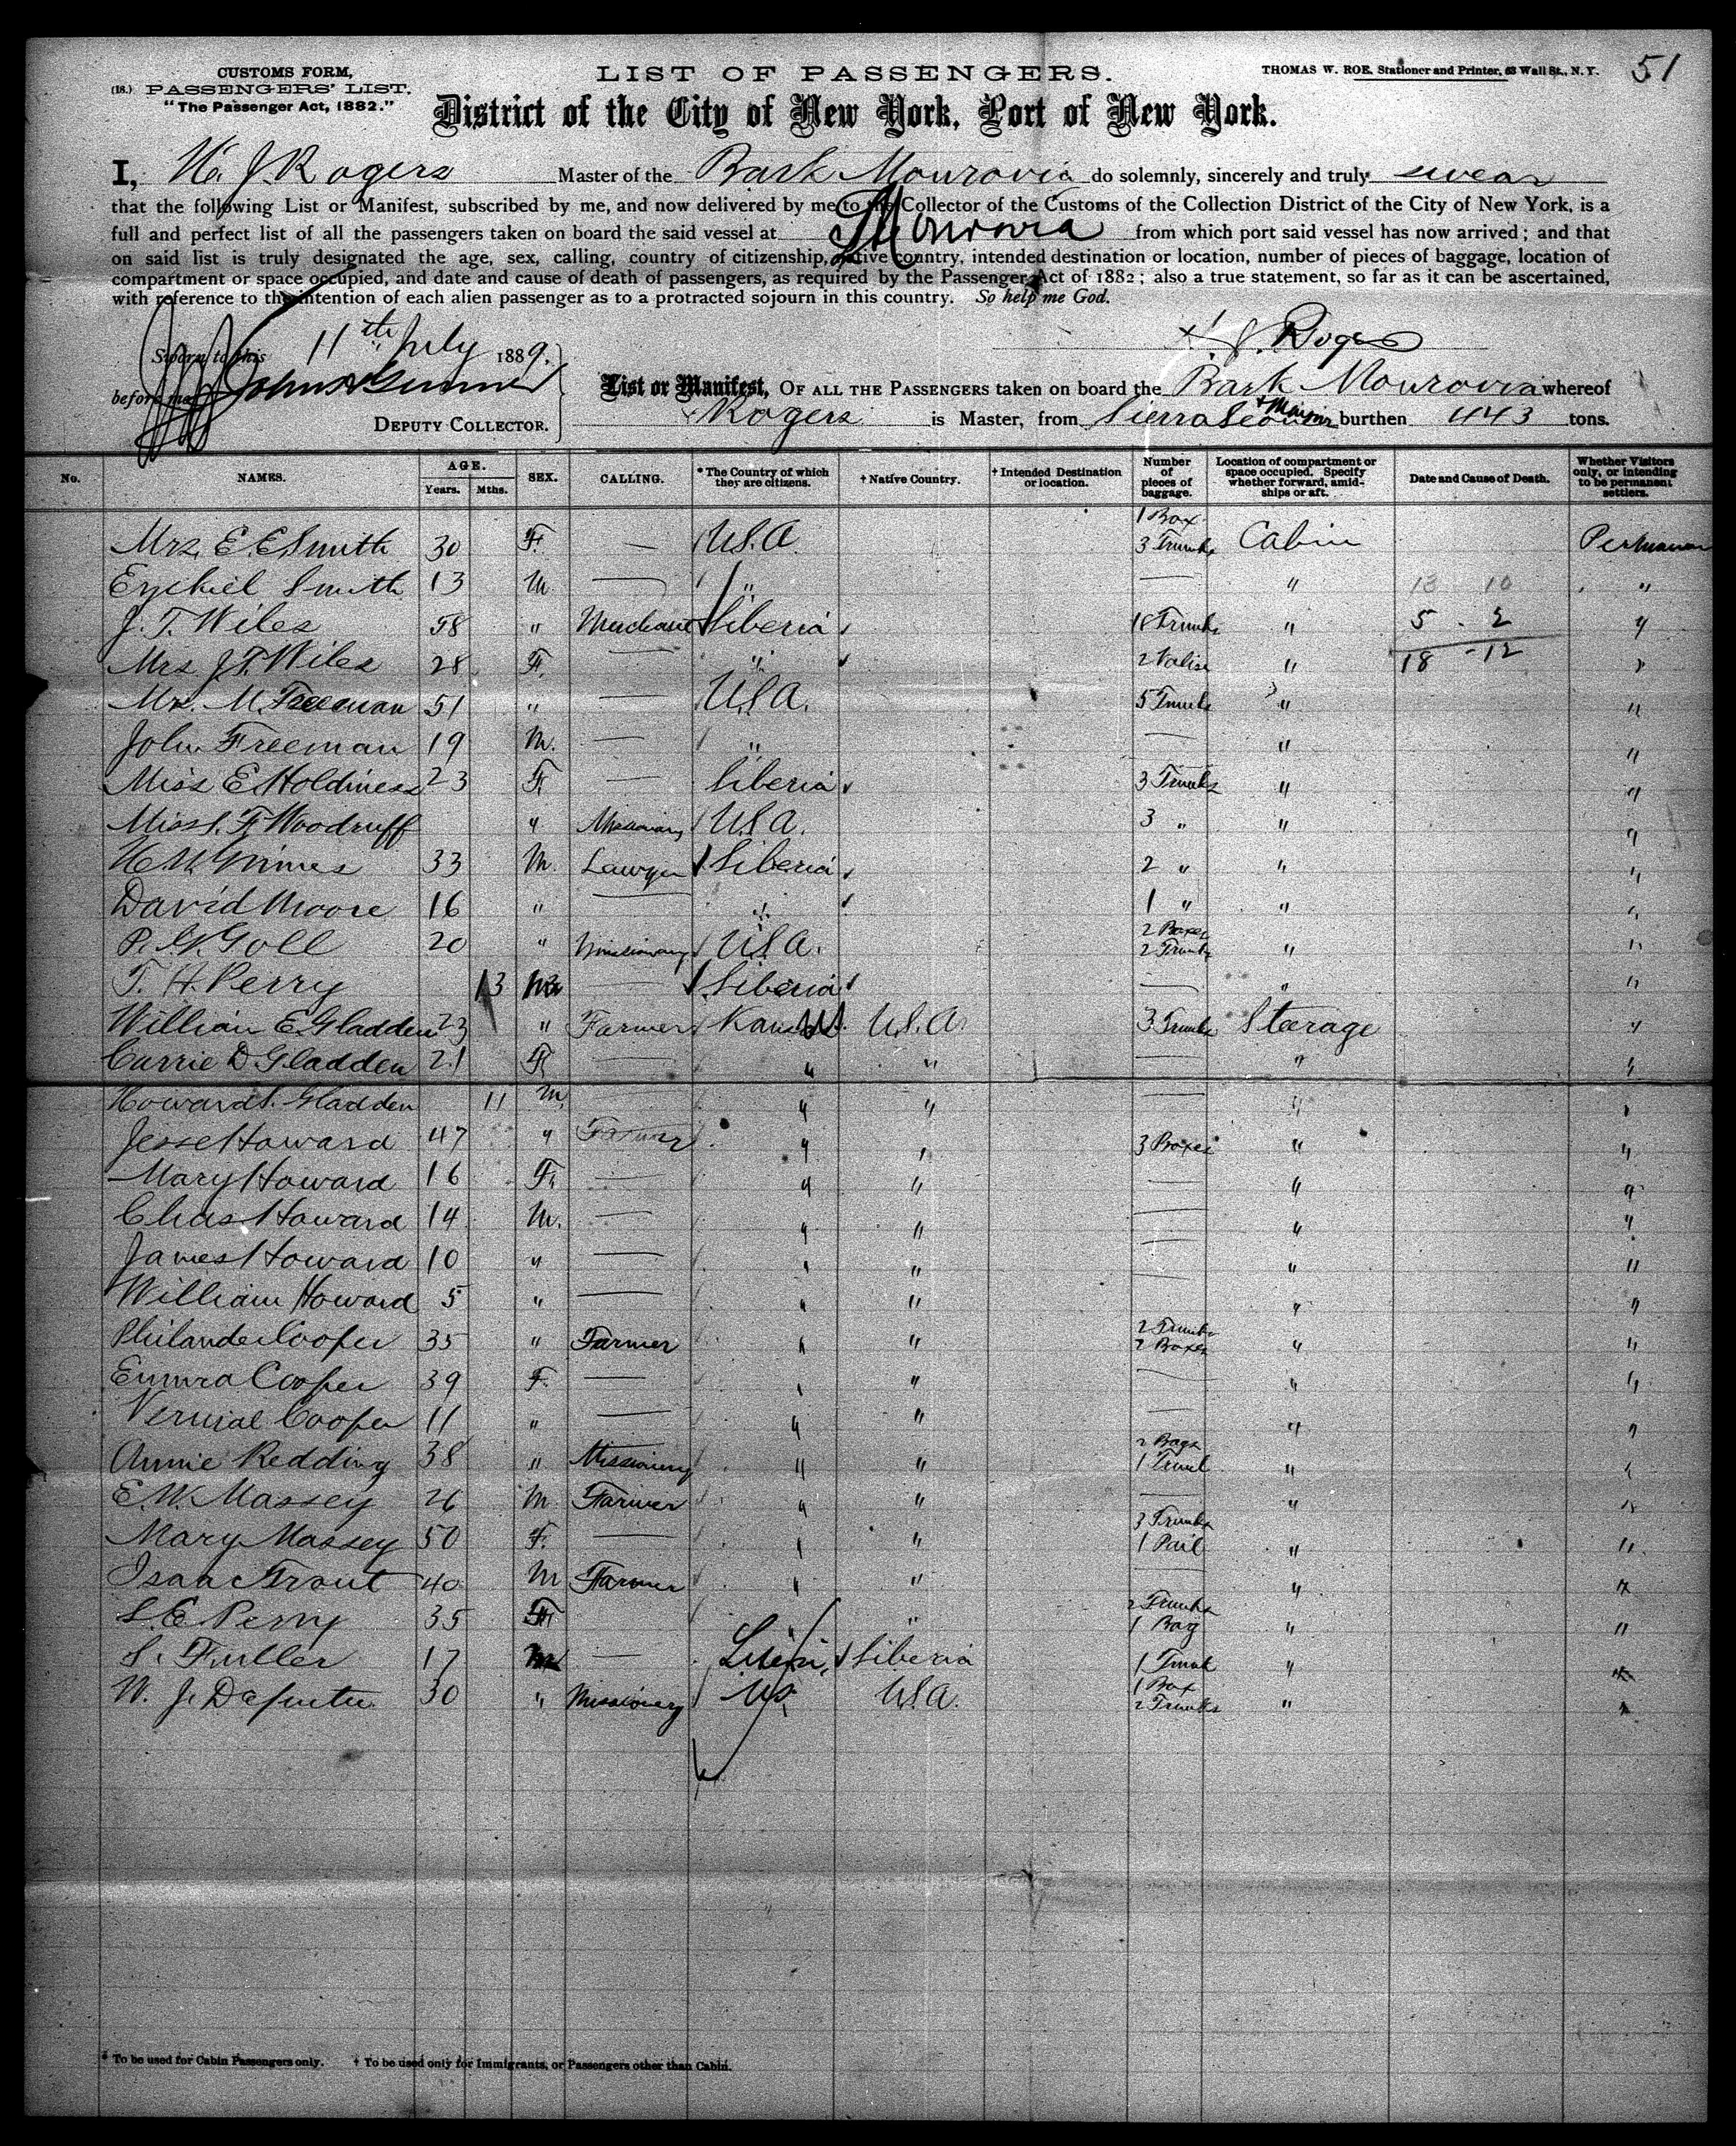 CUSTOMS FORM,
(18.) PASSENGERS' LIST.
"The Passenger Act, 1882."
LIST OF PASSENGERS.
THOMAS W. ROE, Stationer and Printer, 63 Wall St., N. Y.
51
District of the City of New York, Port of New York.
I, H. J. Rogers Master of the Bark Monrovia do solemnly, sincerely and truly swear
that the following List or Manifest, subscribed by me, and now delivered by me to the Collector of the Customs of the Collection District of the City of New York, is a
full and perfect list of all the passengers taken on board the said vessel at Monrovia from which port said vessel has now arrived; and that
on said list is truly designated the age, sex, calling, country of citizenship, native country, intended destination or location, number of pieces of baggage, location of
compartment or space occupied, and date and cause of death of passengers, as required by the Passenger Act of 1882; also a true statement, so far as it can be ascertained,
with reference to the intention of each alien passenger as to a protracted sojourn in this country. So help me God.
Sworn to this 11th July 1889.
J. Rogers
before me
DEPUTY COLLECTOR.
List or Manifest, OF ALL THE PASSENGERS taken on board the Bark Monrovia whereof
Rogers is Master, from Sierra Leone burthen 443 tons.
No. NAMES. AGE. Years. Mths. SEX. CALLING. * The Country of which they are citizens. † Native Country. † Intended Destination or location. Number of pieces of baggage. Location of compartment or space occupied. Specify whether forward, amidships or aft. Date and Cause of Death. Whether Visitors only, or intending to be permanent settlers.
Mrs. E. E. Smith 30 F. — U.S.A. 1 Box 3 Trunks Cabin
Ezekiel Smith 13 M. — " — " 13 10 "
J. T. Wiles 58 " Merchant Liberia 18 Trunks " 5 - 2 "
Mrs J. T. Wiles 28 F. " 2 Valise " 18 - 12 "
M. Freeman 51 " — U.S.A. 5 Trunks " "
John Freeman 19 M. — " — " "
Miss E. Holdiness 23 F. — Liberia 3 Trunks " "
Miss F. Woodruff " Missionary U.S.A. 3 " " "
Grimes 33 M. Lawyer Liberia 2 " " "
David Moore 16 " — " 1 " " "
P. G. Goll 20 " Missionary U.S.A. 2 Boxes 2 Trunks " "
T. H. Perry 13 — Liberia — " "
William E. Gladden 23 " Farmer Kansas U.S.A. 3 Trunks Steerage "
Carrie D. Gladden 21 F. — " " — " "
Howard S. Gladden 11 M. " " — " "
Jesse Howard 47 " Farmer " " 3 Boxes " "
Mary Howard 16 F. — " " — " "
Chas Howard 14 M. — " " — " "
James Howard 10 " — " " — " "
William Howard 5 " — " " — " "
Philander Cooper 35 " Farmer " " 2 Trunks 2 Boxes " "
Emma Cooper 39 F. — " " — " "
Cooper 11 " — " " — " "
Annie Redding 38 " Missionary " " 2 Bags 1 Trunk " "
E. W. Massey 26 M Farmer " " — " "
Mary Massey 50 F. — " " 3 Trunks 1 Pail " "
Isaac Trout 40 M Farmer " " — " "
S. E. Perry 35 F " " 2 Trunks 1 Bag " "
S. Fuller 17 M — Liberia 1 Trunk "
W. J. 30 " Missionary US U.S.A. 1 Box 2 Trunks "
* To be used for Cabin Passengers only. † To be used only for Immigrants, or Passengers other than Cabin.